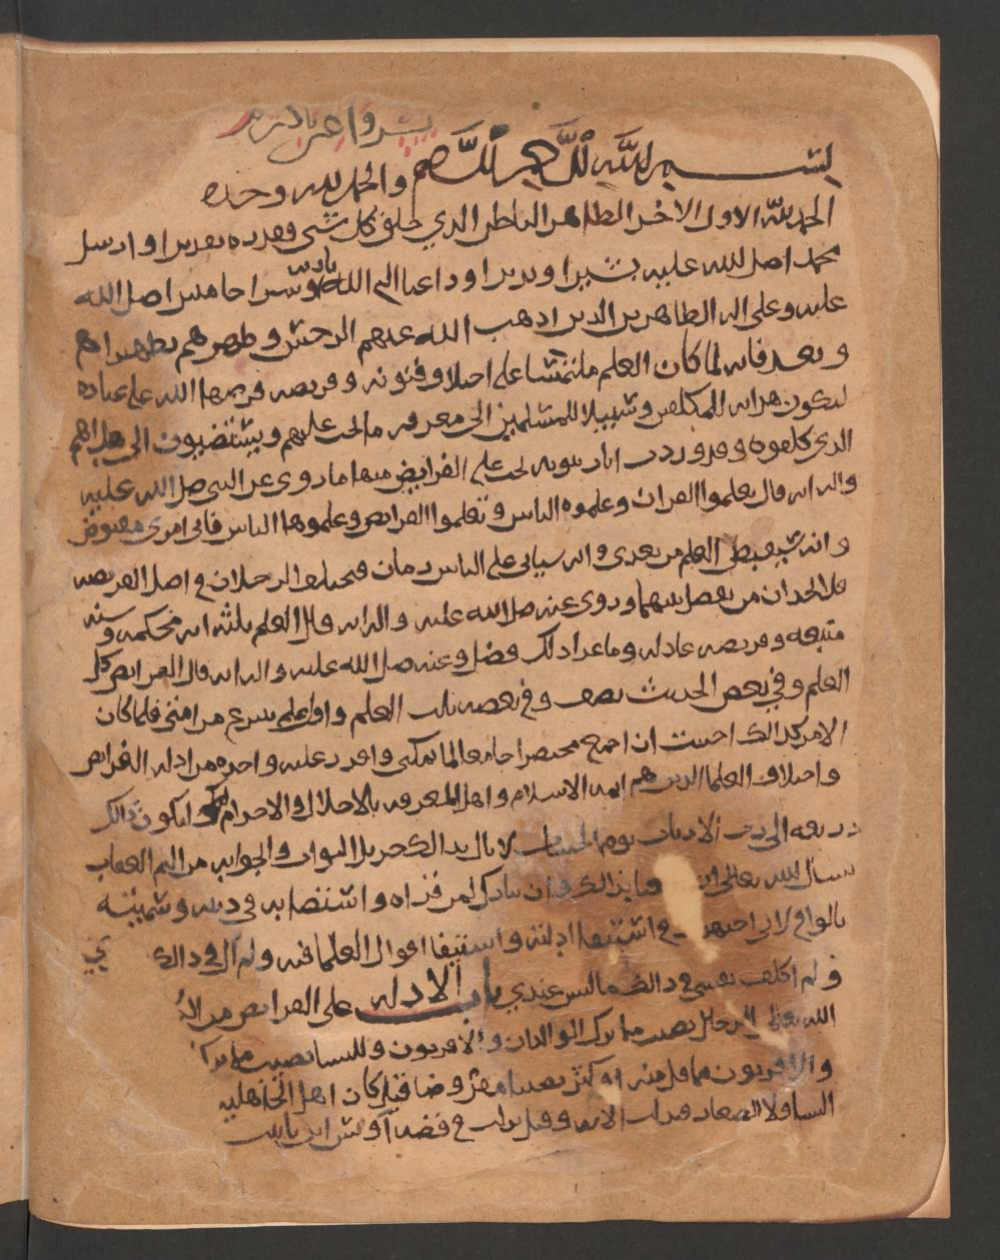 بسم الله الرحمن الرحيم والحمد لله وحده
الحمد لله الاول الاخر الظاهر الباطن الذي خلق كل شي فقدره تقديرا وارسل
محمدا صل الله عليه بشيرا ونذيرا وداعيا الى الله باذنه وسراجا منيرا صل الله
عليه وعلى اله الطاهرين الذين اذهب الله عنهم الرجس وطهرهم تطهيرا
وبعد فانه لما كان العلم ملتمسا على اختلاف فنونه وفريضه فرضها الله على عباده
ليكون هدايه للمكلفين وسبيلا للمسلمين الى معرفه ما يجب عليهم ويستضيون الى
الذي كلفوه وقد وردت اثار نبويه تحث على الفرايض منها ما روي عن النبي صل الله عليه
واله انه قال تعلموا القران وعلموه الناس وتعلموا الفرايض وعلموها الناس فاني امرؤ مقبوض
وانه سيقبض العلم من بعدي وانه سياتي على الناس زمان فيختلف الرجلان في اصل الفريضه
فلا يجدان من يفصل بينهما وروي عنه صل الله عليه واله انه قال العلم ثلثه ايه محكمه وسنه
متبعه وفريضه عادله وما عدا ذلك فضل وعنه صل الله عليه واله انه قال الفرايض كل
العلم وفي بعض الحديث نصف وفي بعضه ثلث العلم واول علم ينزع من امتي فلما كان
الامر كذالك احببت ان اجمع مختصرا جامعا لما يمكنني واورد عليه واحده من ادله الفرايض
واختلاف العلما الذين هم ايمه الاسلام واهل المعرفه بالاحلال والاحرام ليكون ذالك
ذريعه الى رب الارباب يوم الحساب لا نال بذالك جزيل الثواب والجوايه من اليم العقاب
نسال الله تعالى ان بذالك وان يبارك لمن قراه واستضا به في دينه وسميته
بالوافي لاني اجتهدت في استيفا ادلته واستيفا اقوال العلما فيه ولم ال في ذالك
ولم اكلف نفسي في ذالك ما ليس عندي باب الادله على الفرايض من
الله تعالى للرجال نصيب مما ترك الوالدان والاقربون وللنسا نصيب مما ترك
والاقربون مما قل منه او كثر نصيبا مفروضا قيل كان اهل الجاهليه
النسا ولا الصغار فنزلت الايه وقيل نزلت في قصه اوس ابن ثابت